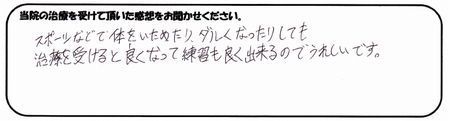 当院の治療を受けて頂いた感想をお聞かせください。
スポーツなどで体をいためたり、ダルくなったりしても
治療を受けると良くなって練習も良く出来るのでうれしいです。